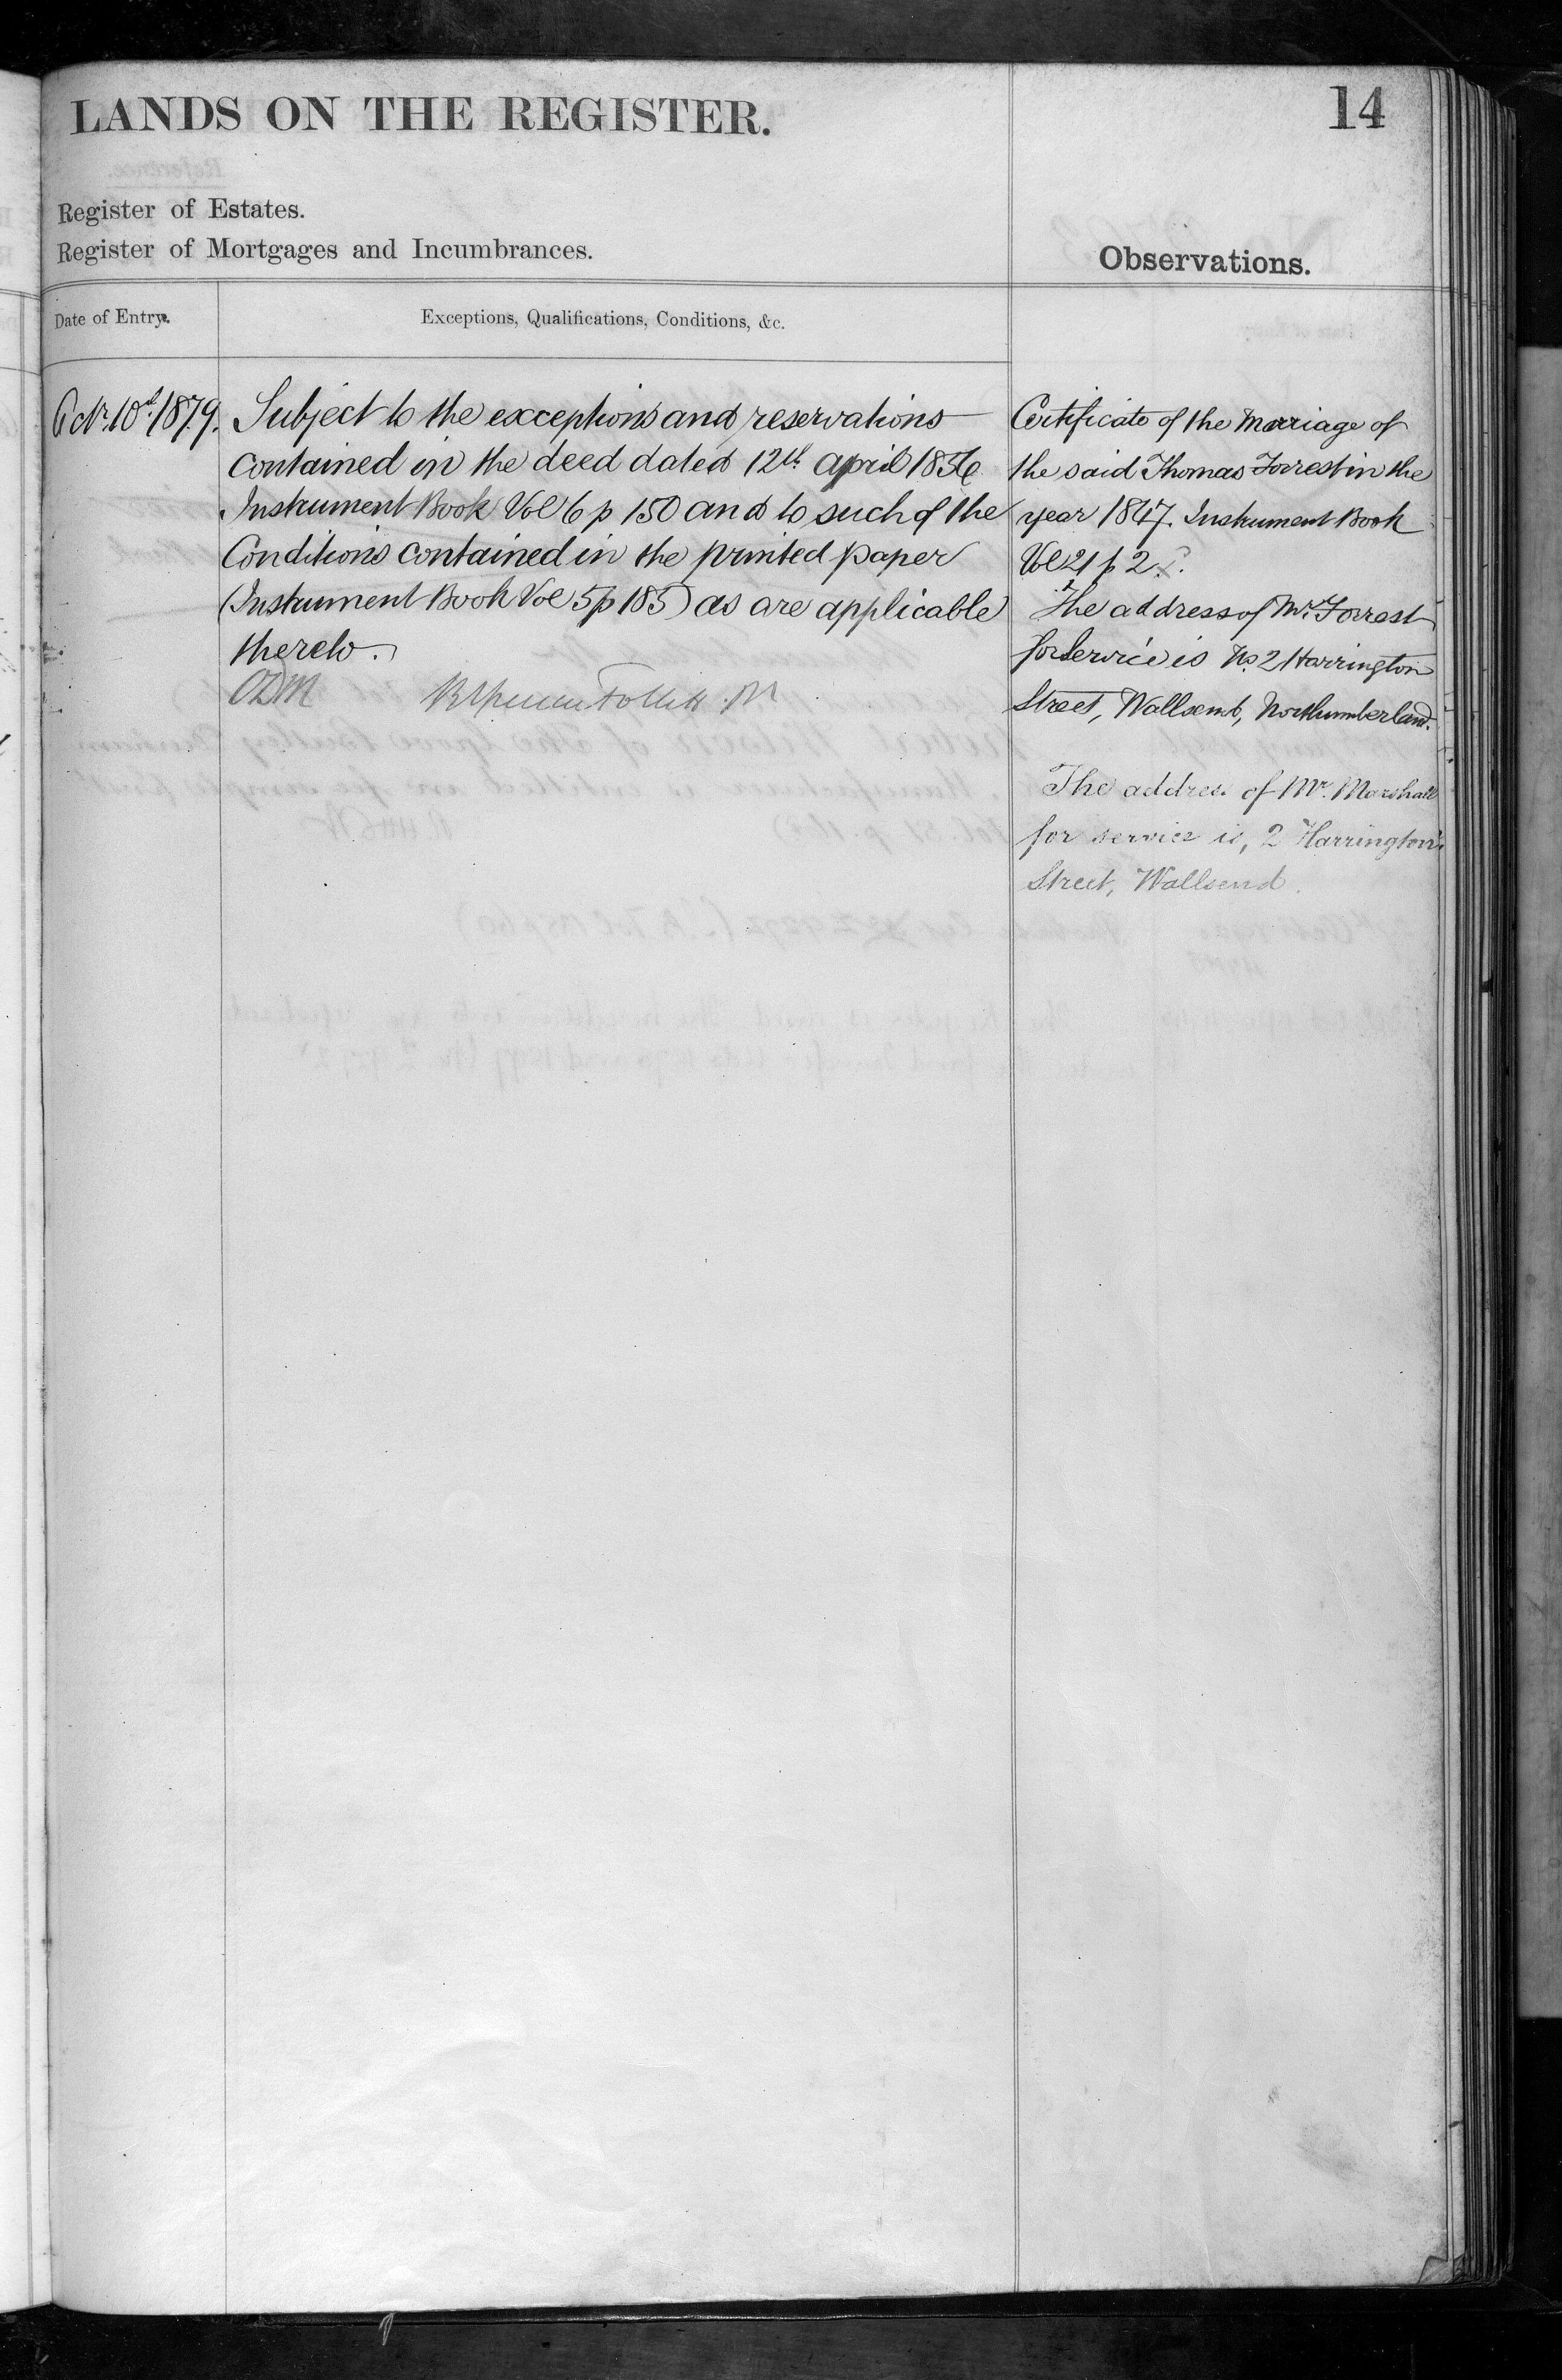 LANDS ON THE REGISTER.
14
Register of Estates.
Register of Mortgages and Incumbrances.
Observations.
Date of Entry.
Exceptions, Qualifications, Conditions, &c.
Octr. 10th 1879.
Subject to the exceptions and reservations
contained in the deed dated 12th April 1856
Instrument Book Vol 6 p 150 and to such of the
Conditions contained in the printed paper
(Instrument Book Vol 5 p 185) as are applicable
thereto.
Certificate of the Marriage of
the said Thomas Forrest in the
year 1847. Instrument Book
Vol 21 p 2
The address of Mr. Forrest
for Service is No. 2 Harrington
Street, Wallsend, Northumberland.
The address of Mr. Marshall
for service is, 2 Harrington
Street, Wallsend.